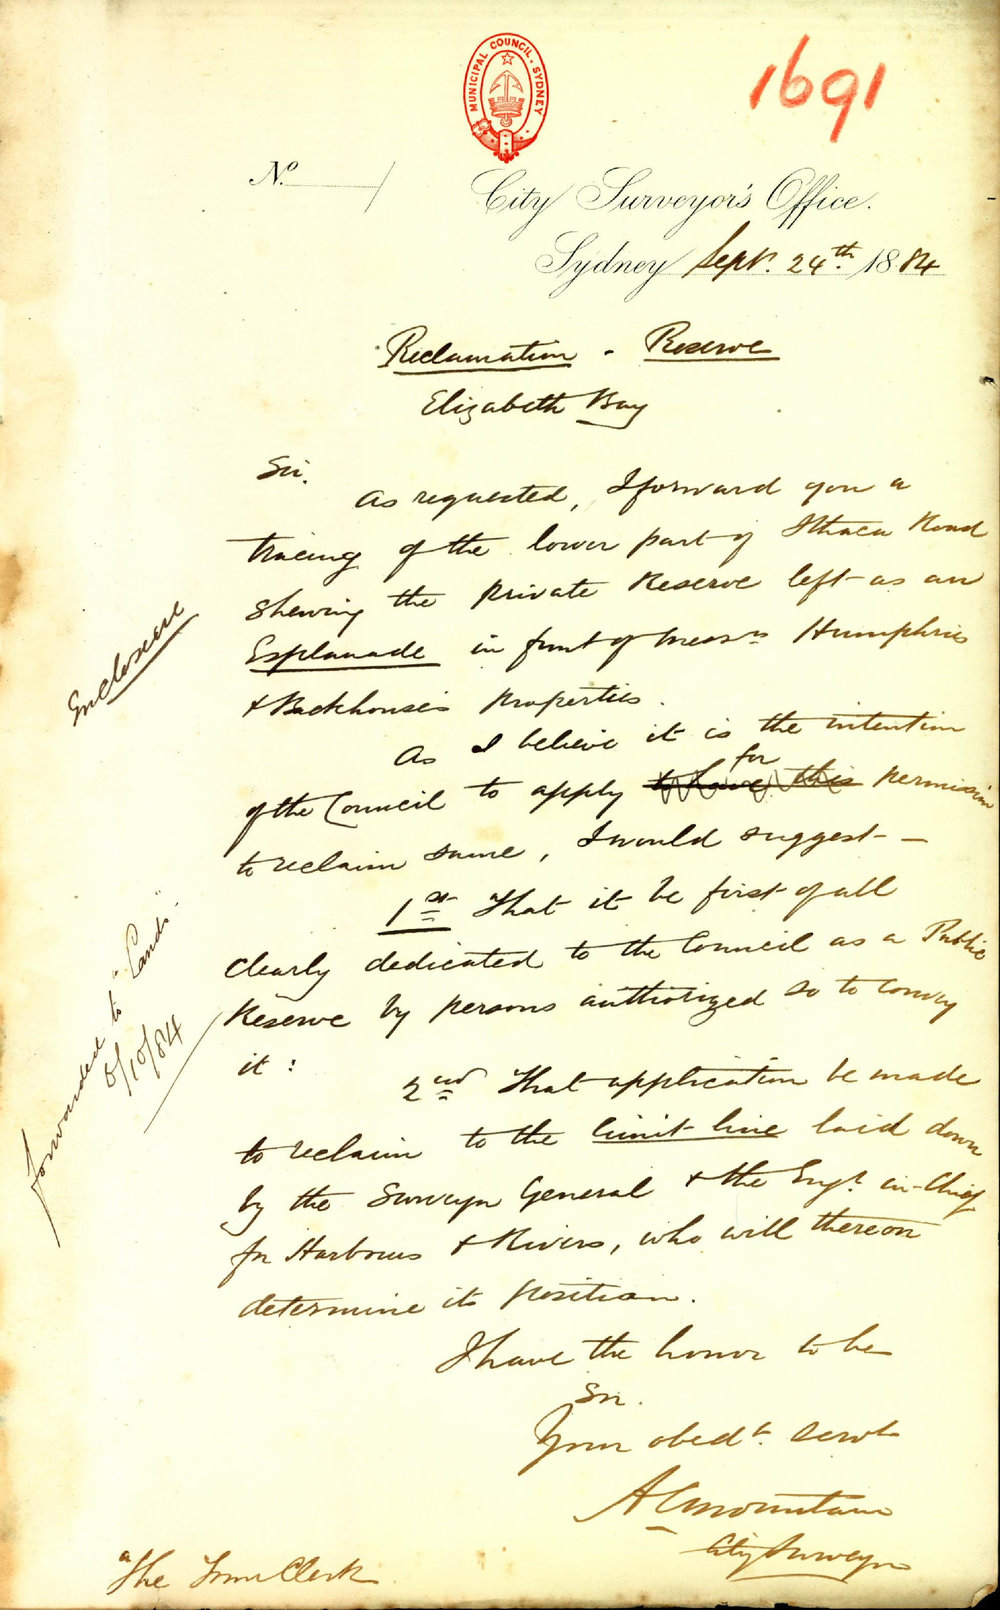 MUNICIPAL COUNCIL. SYDNEY
1691
No.
City Surveyor's Office.
Sydney Sept. 24th. 1884
Reclamation - Reserve
Elizabeth Bay
Sir.
As requested, I forward you a
tracing of the lower part of Ithaca Road
shewing the private Reserve left as an
Esplanade in front of Messrs Humphries
& Backhouse's properties.
As I believe it is the intention
for
of the Council to apply to have this permission
to reclaim same, I would suggest—
1st That it be first of all
clearly dedicated to the Council as a Public
Reserve by persons authorized so to convey
it:
2nd That application be made
to reclaim to the limit line laid down
by the Surveyor General & the Engr. in-Chief
for Harbours & Rivers, who will thereon
determine its position.
I have the honor to be
Sir.
Your obedt. servt
A C Mountain
City Surveyor
The Town Clerk
Enclosure
forwarded to "Lands"
8/10/84